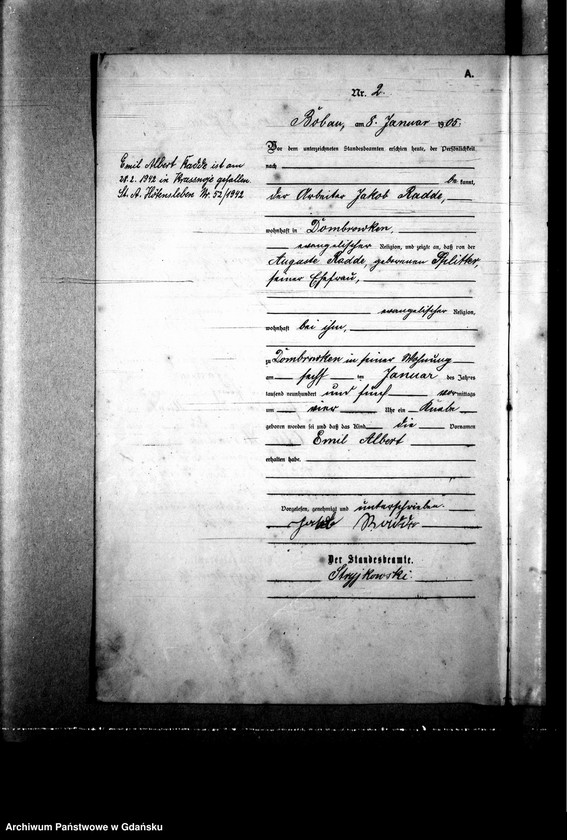 A.
Nr. 2.
Bobau, am 8. Januar 1905.
Vor dem unterzeichneten Standesbeamten erschien heute, der Persönlichkeit
nach
be kannt,
der Arbeiter Jakob Radde,
wohnhaft in Dombrowken,
evangelischer Religion, und zeigte an, daß von der
Auguste Radde, geborenen Splitter,
seiner Ehefrau,
evangelischer Religion,
wohnhaft bei ihm,
zu Dombrowken in seiner Wohnung
am sechs ten Januar des Jahres
tausend neunhundert und fünf vormittags
um vier Uhr ein Knabe
geboren worden sei und daß das Kind die Vornamen
Emil Albert
erhalten habe.
Vorgelesen, genehmigt und unterschrieben.
Jakob Radde
Der Standesbeamte.
Stryjkowski.
Emil Albert Radde ist am
28.2.1942 in Krassnoje gefallen.
St. A. Hötensleben Nr. 52/1942
Archiwum Państwowe w Gdańsku